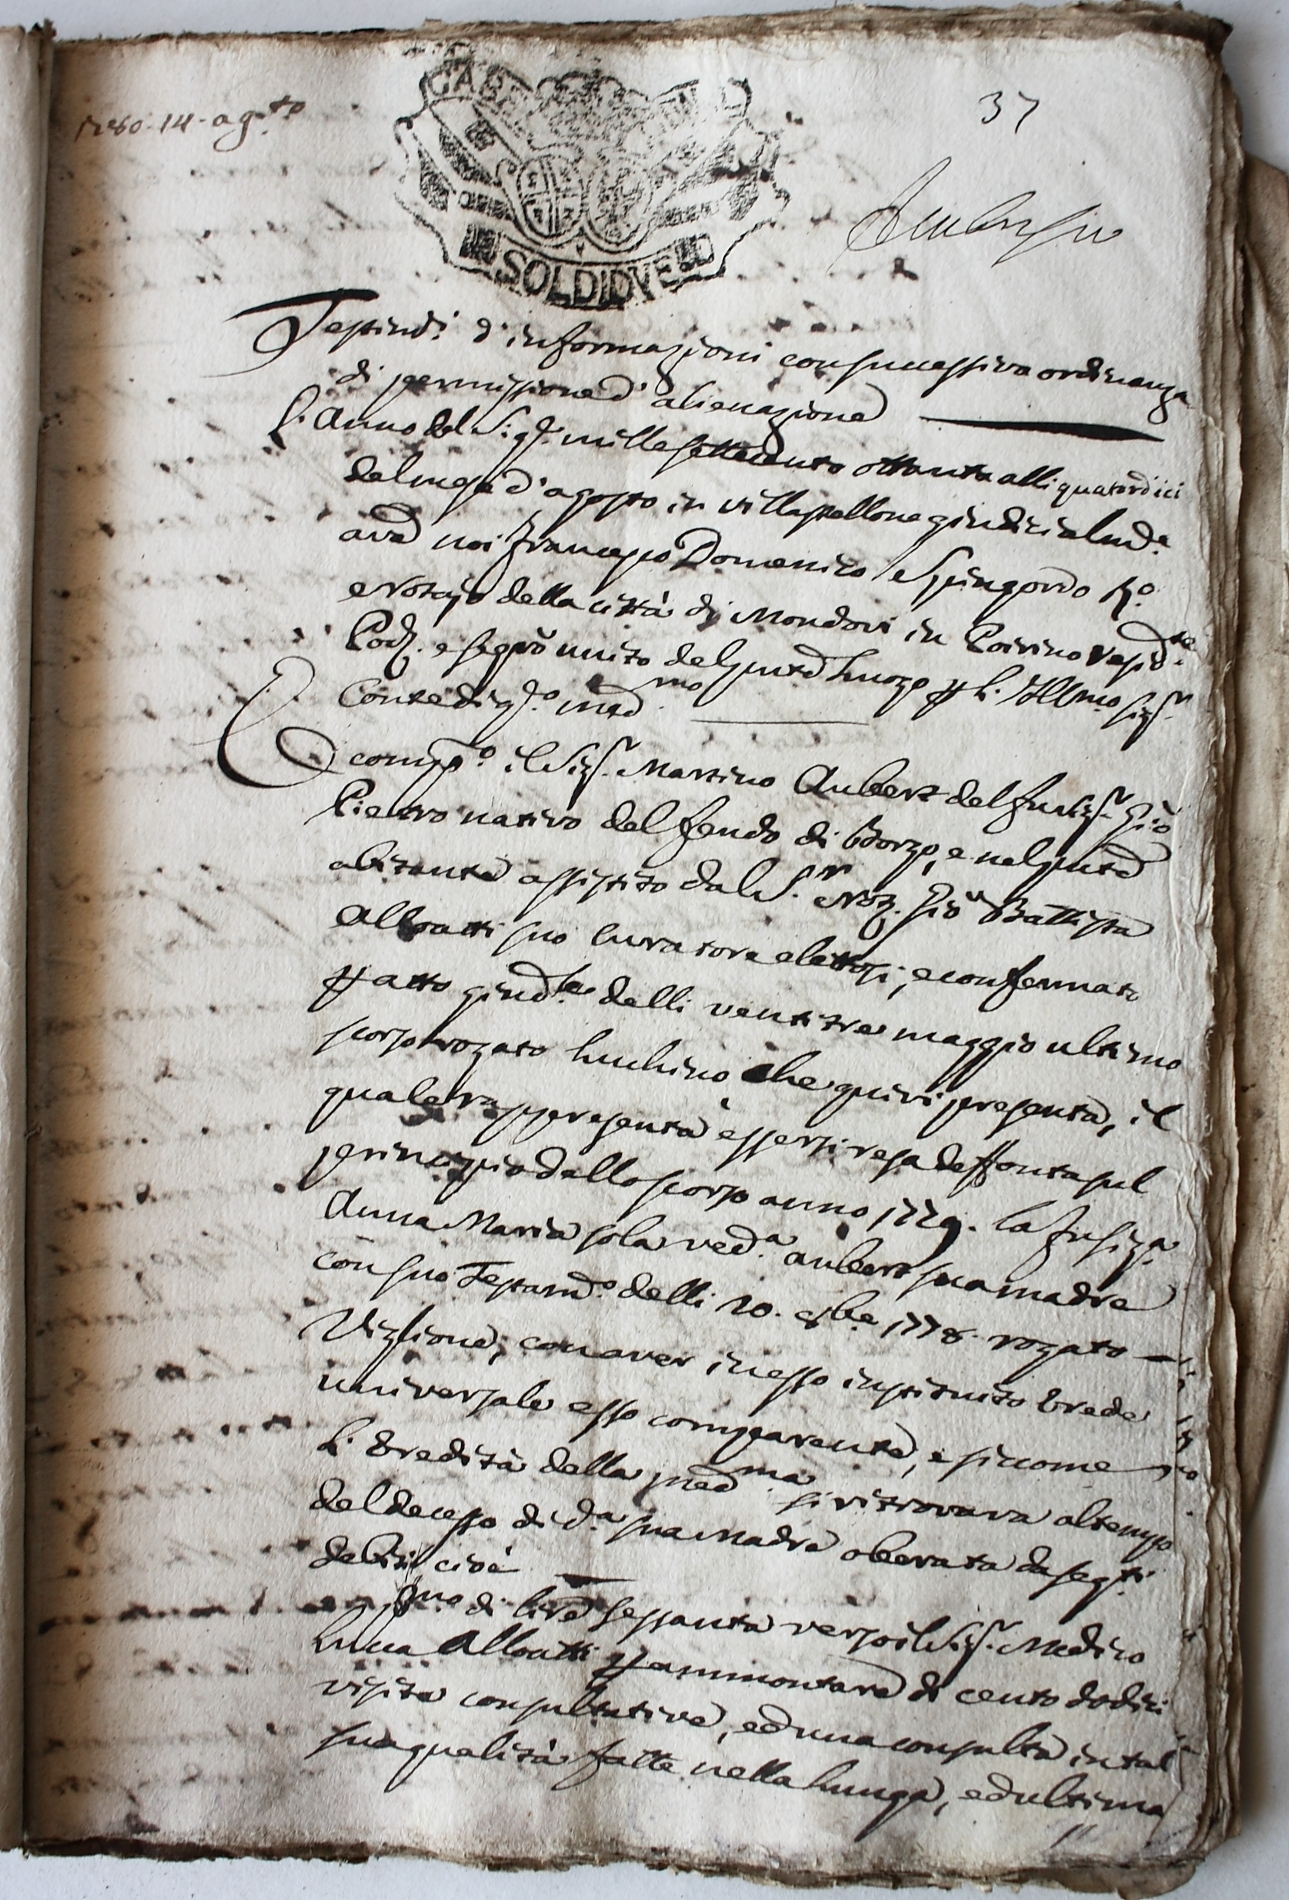 1780. 14. ag.to
37
GABE
SOLDI DVE
Testiali d'informazioni con successiva ordinanza
di permissione d'alienazione
L'Anno del Sig.r mille settecento ottanta alli quatordici
del mese d'agosto in villastellone giudicialm.e
avanti noi Francesco Domenico
e Notajo della città di Mondovi in Poirino resid.te
Pod. e segr.o del luogo per l'Ill.mo Sig.r
Conte di med.mo
È comp.o il Sig.r Martino Aubert del fu Sig.r Gio
Pietro nativo del feudo di e nel pnte
abitante assistito dal S.r Not. Gio Battista
Alloatti suo curatore elettosi, e confermato
per atto giud.le delli ventitre maggio ultimo
scorso rogato Luchino che quivi presenta, il
quale rappresenta essersi resa deffonta sul
principio dello scorso anno 1779. la fu Sig.ra
Anna Maria sola ved.a aubert sua madre
con suo Testam.o delli 20. 1778. rogato
con aver in esso instituito Erede
universale esso comparente, e siccome
l'Eredità della med.ma si ritrovava al tempo
del decesso di d.a sua Madre oberata da seg.ti
debiti cioè
P.mo di lire sessanta verso il Sig.r Medico
Luca Alloatti per ammontare di cento dodici
visite consultative, ed una consulta in tal
sua qualità fatte nella lunga, ed ultima